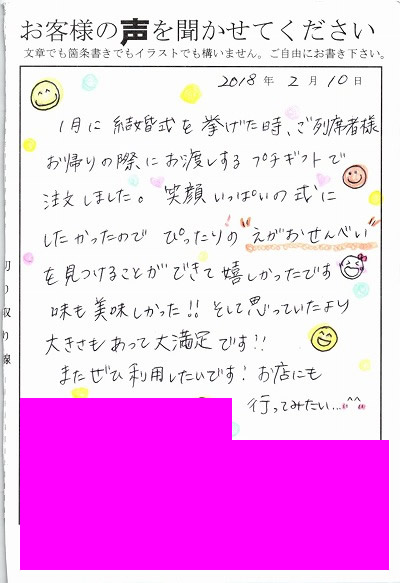 お客様の声を聞かせてください
文章でも箇条書きでもイラストでも構いません。ご自由にお書き下さい。
2018年2月10日
1月に結婚式を挙げた時、ご列席者様
お帰りの際にお渡しするプチギフトで
注文しました。笑顔いっぱいの式に
したかったので ぴったりの"えがおせんべい"
を見つけることができて嬉しかったです
味も美味しかった!! そして思っていたより
大きさもあって大満足です!!
またぜひ利用したいです! お店にも
行ってみたい...^^
切り取り線